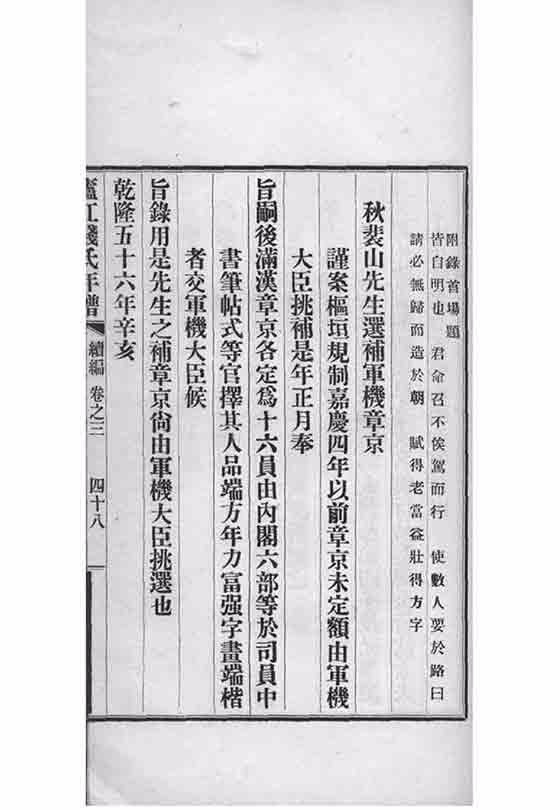 附錄首場題
皆自明也　君命召不俟駕而行　使數人要於路曰
請必無歸而造於朝　賦得老當益壯得方字
秋裴山先生選補軍機章京
謹案樞垣規制嘉慶四年以前章京未定額由軍機
大臣挑補是年正月奉
旨嗣後滿漢章京各定爲十六員由內閣六部等於司員中
書筆帖式等官擇其人品端方年力富强字畫端楷
者交軍機大臣候
旨錄用是先生之補章京尙由軍機大臣挑選也
乾隆五十六年辛亥
廬江錢氏年譜　續編　卷之三　四十八